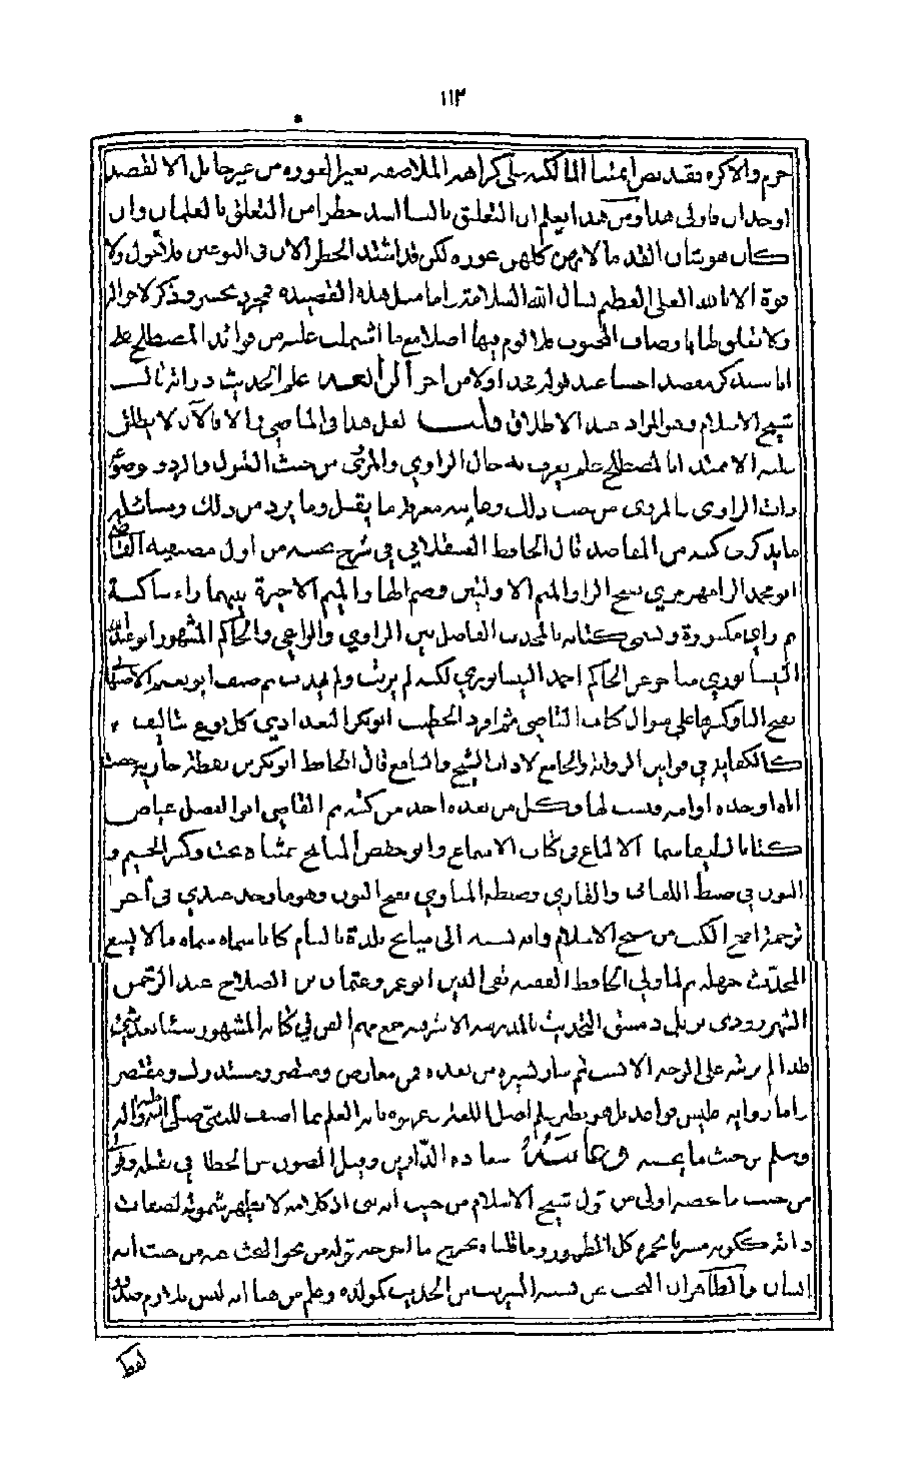 ١١٣
حرم والاكره فقد نص ائمتنا المالكية على كراهة الملاصقة بغير العورة من غير حائل الا لقصد
او وجدان فاولى هذا ومن هذا يعلم ان التعلق بالنسا اشد خطرا من التعلق بالغلمان وان
كان هو شان الفقد ما لانهن كلهن عوره لكن قد اشتد الخطر الان فى النوعين فلا حول ولا
قوة الا بالله العلي العظيم نسال الله السلامة واما مثل هذه القصيده فمجرد تحسر وذكر لاحوال
ولا تعلق لها باوصاف المحبوب فلا لوم فيها اصلا مع ما اشتملت عليه من فوائد المصطلح على
انا سنذكر مقصدا حسنا عند قوله اولا من اخر الرابعة علم الحديث دراية قال
شيخ الاسلام وهو المراد عند الاطلاق قلت لعل هذا في الماضي والا فالآن لا يطلق
عليه الا مقيدا اما المصطلح علم يعرف به حال الراوي والمروي من حيث القبول والرد وموضوعه
ذات الراوى والمروى من حيث ذلك وغايته معرفة ما يقبل وما يرد من ذلك ومسائله
ما يذكر فى كتبه من المقاصد قال الحافظ العسقلاني في شرح نخبته من اول من صنف فيه القاضي
ابو محمد الرامهرمزي بفتح الرا والميم الاوليين وضم الها والميم الاخيرة بينهما راء ساكنة
ثم زاي مكسورة وسمى كتابه بالمحدث الفاصل بين الراوي والواعي والحاكم المشهور ابو عبدالله
النيسابوري لكنه لم يرتب ولم يهذب ثم صنف ابو نعيم الاصبهاني
بفتح البا وكسرها على منوال كتاب القاضي ثم افرد الخطيب ابو بكر البغدادي كل نوع تاليف
كالكفاية في قوانين الرواية والجامع لاداب الشيخ والسامع قال الحافظ ابو بكر بن نقطة
وكل من بعده اخذ من كتبه ثم القاضي ابو الفضل عياض
كتابا لطيفا سماه الالماع وفي كتاب الاسماع وابو حفص الميانجي بمثناة تحت وكسر الجيم و
النون فى ضبط اللقانى والقاري وضبطه المناوي بفتح النون وهو ما وجد عندي فى آخر
ترجمة من شيخ الاسلام وانه نسبه الى ميانج بلدة بالشام كتابا سماه ما لا يسع
المحدث جهله ثم لما ولي الحافظ الفقيه تقى الدين ابو عمرو عثمان بن الصلاح عبد الرحمن
الشهرزوري نزيل دمشق التحديث بالمدرسة الاشرفية جمع مهم الفن في كتابه المشهور شيئا بعد شيئ
فلذا لم يرتبه على الوجه الانسب ثم سار لسيره من بعده فمن معارض ومنتصر ومستدرك ومقتصر
واما رواية فليس قواعد بل هو علم اصلا اللغة يعرفوه بانه العلم بما اضيف للنبي صلى الله عليه واله
وسلم من حيث ما يخصه وغايته سعادة الدارين وقيل الصون عن الخطا في نقله وقولي
من حيث ما يخصه اولى من قول شيخ الاسلام من حيث انه نبى اذ كلامه لا يظهر شموله لصفات
ذاته ككونه مشربا بحمرة كل الظهور وما قلناه يخرج ما اخرجه بقوله من نحو البحث عنه من حيث انه
انسان والظاهر ان البحث عن قسمة الشريف من الحديث كمولده وعلم من هنا انه ليس بلازم صدور
لفظ